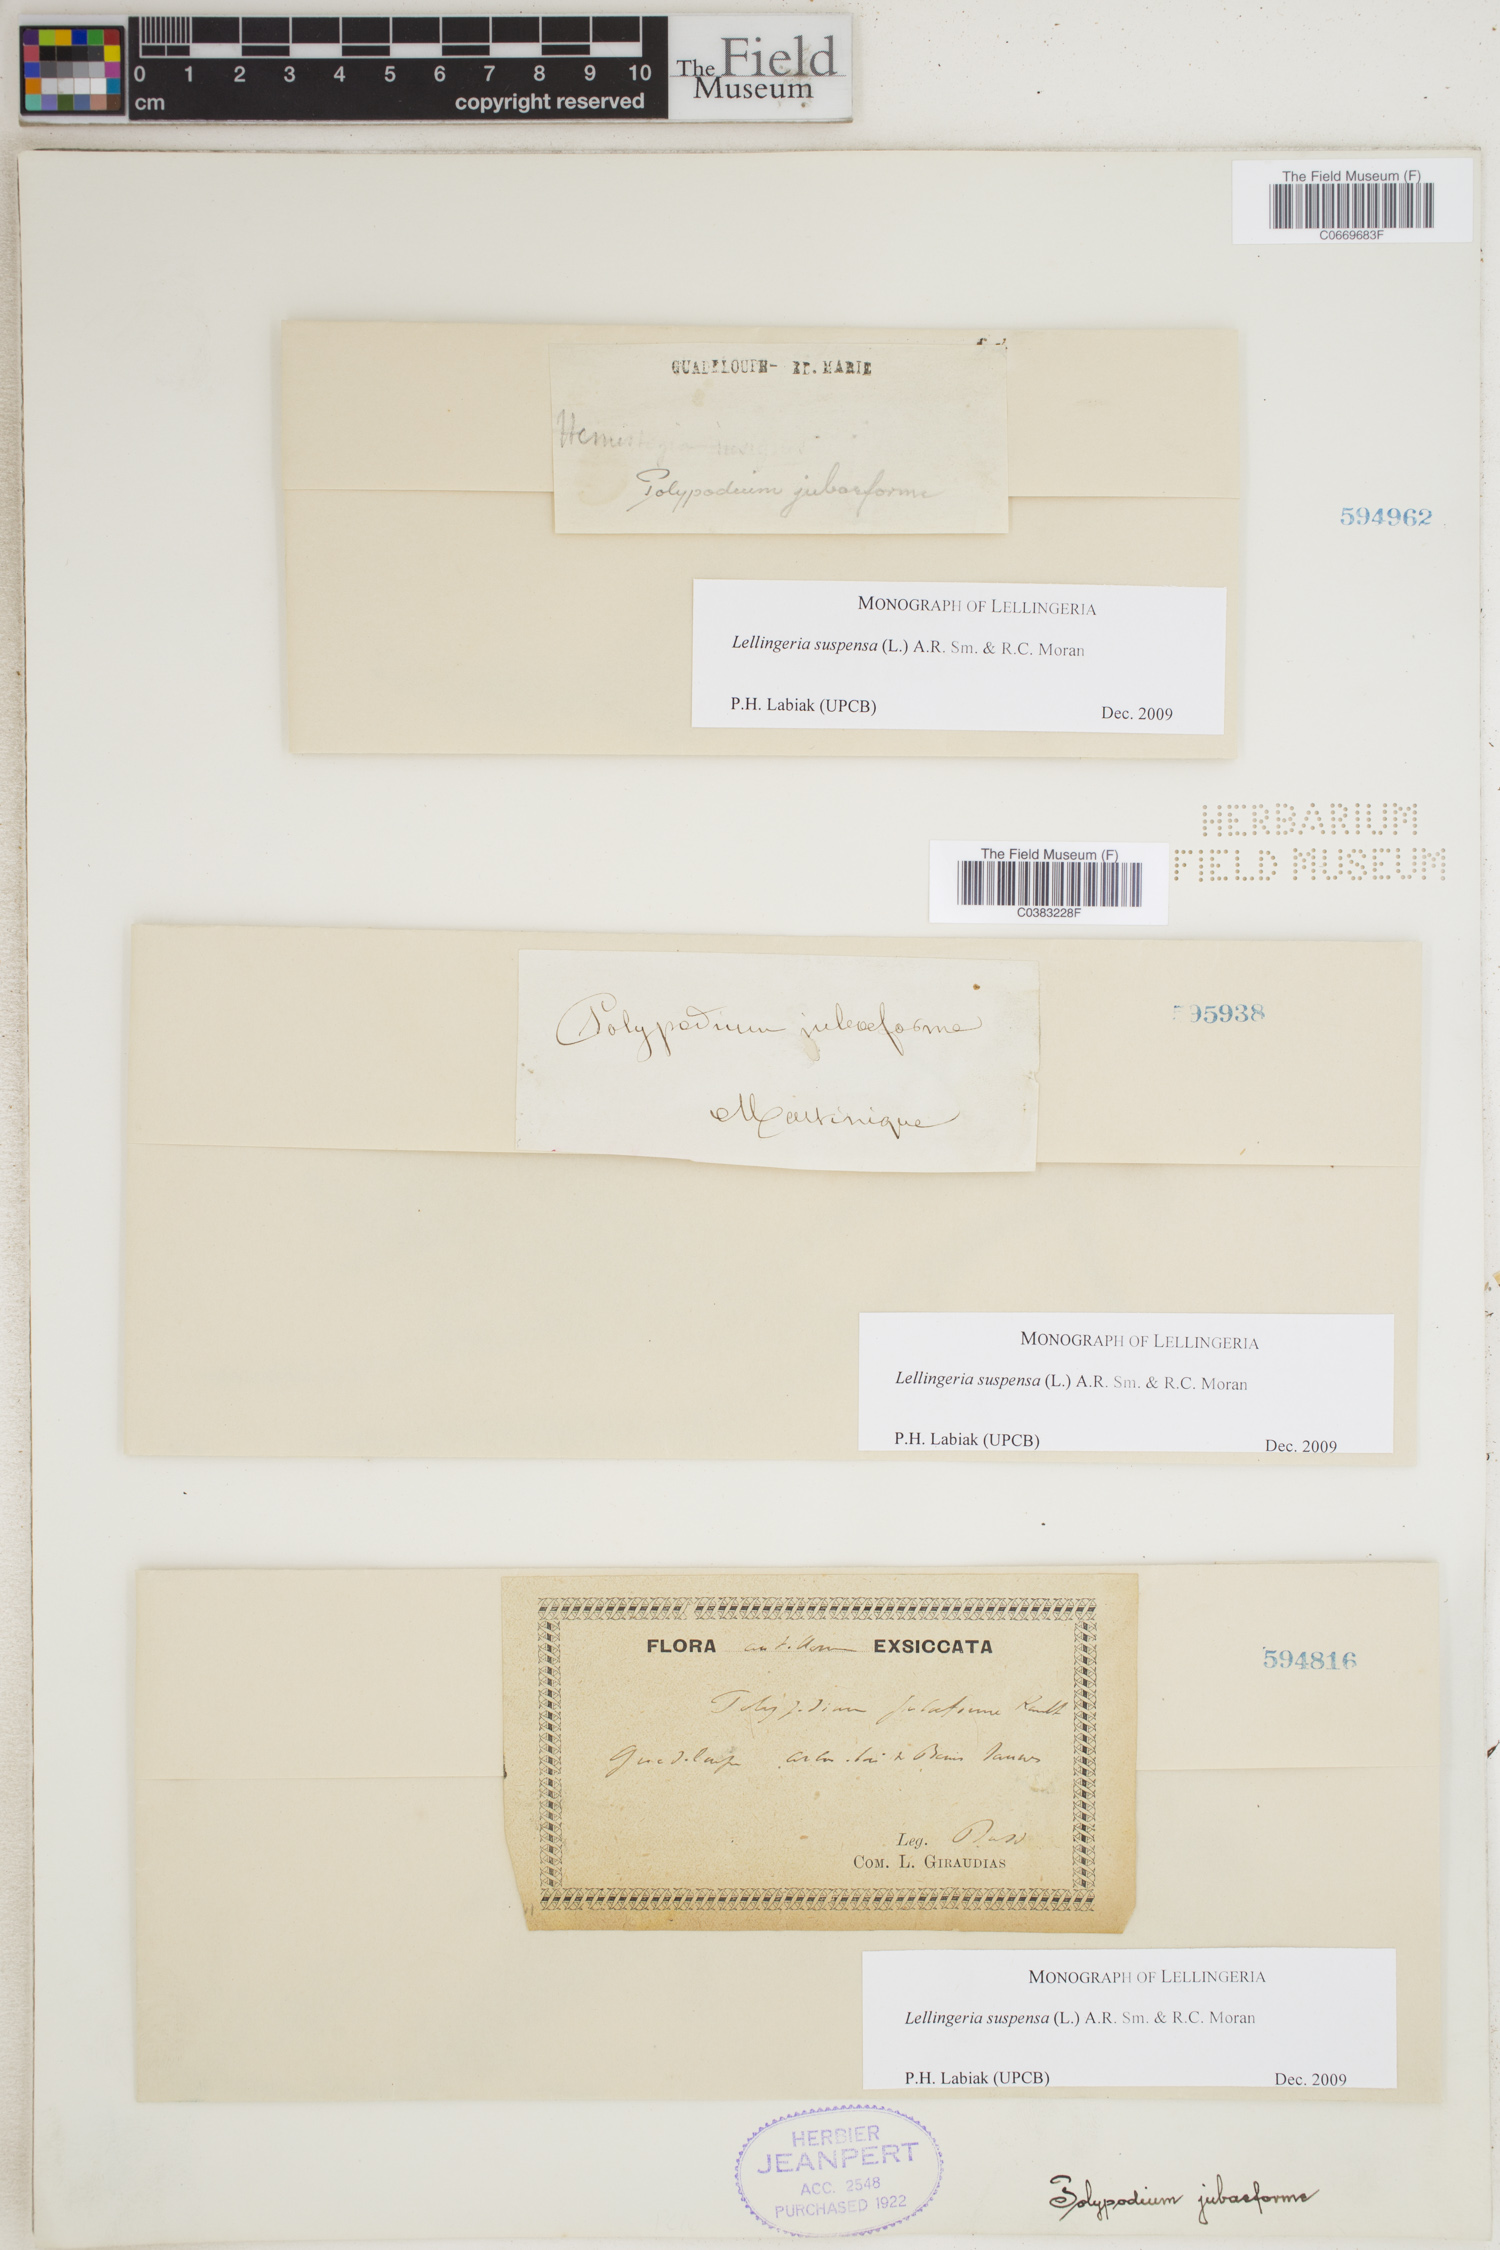 0 1 2 3 4 5 6 7 8 9 10
cm
copyright reserved
The Field
Museum
The Field Museum (F)
C0669683F
GUADELOUPE- ST. MARIE
Polypodium jubaeforme
594962
MONOGRAPH OF LELLINGERIA
Lellingeria suspensa (L.) A.R. Sm. & R.C. Moran
P.H. Labiak (UPCB)
Dec. 2009
HERBARIUM
FIELD MUSEUM
The Field Museum (F)
C0383228F
Polypodium jubaeforme
Martinique
595938
MONOGRAPH OF LELLINGERIA
Lellingeria suspensa (L.) A.R. Sm. & R.C. Moran
P.H. Labiak (UPCB)
Dec. 2009
FLORA EXSICCATA
594816
Polypodium jubaeforme Kaulf
Guadeloupe
Leg.
COM. L. GIRAUDIAS
MONOGRAPH OF LELLINGERIA
Lellingeria suspensa (L.) A.R. Sm. & R.C. Moran
P.H. Labiak (UPCB)
Dec. 2009
HERBIER
JEANPERT
ACC. 2548
PURCHASED 1922
Polypodium jubaeforme